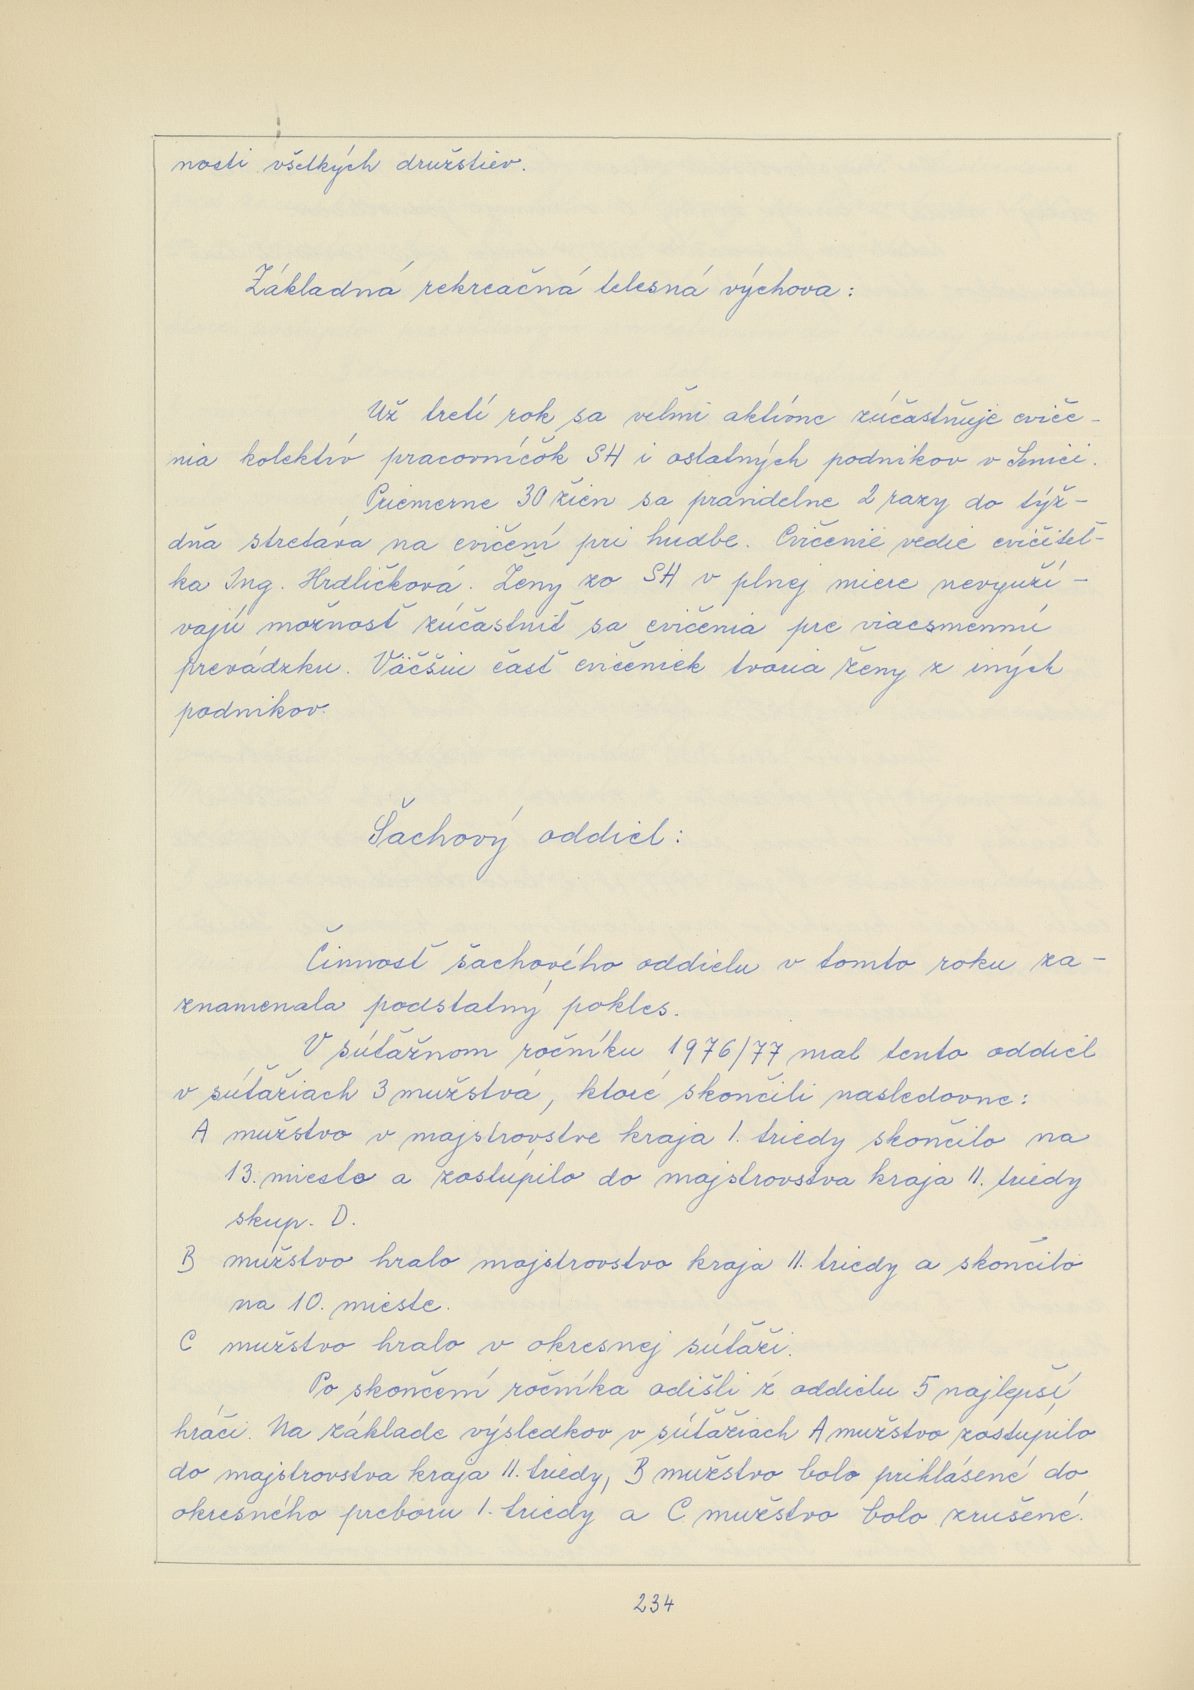 nosti všetkých družstiev.
Základná rekreačná telesná výchova:
Už tretí rok sa veľmi aktívne zúčastňuje cviče-
nia kolektív pracovníčok SH i ostatných podnikov v Senici.
Priemerne 30 žien sa pravidelne 2 razy do týž-
dňa stretáva na cvičení pri hudbe. Cvičenie vedie cvičiteľ-
ka Ing. Hrdličková. Ženy zo SH v plnej miere nevyuží-
vajú možnosť zúčastniť sa cvičenia pre viacsmennú
prevádzku. Väčšiu časť cvičeniek tvoria ženy z iných
podnikov.
Šachový oddiel:
Činnosť šachového oddielu v tomto roku za-
znamenala podstatný pokles.
V súťažnom ročníku 1976/77 mal tento oddiel
v súťažiach 3 mužstvá, ktoré skončili nasledovne:
A mužstvo v majstrovstve kraja I. triedy skončilo na
13. mieste a zostúpilo do majstrovstva kraja II. triedy
skup. D.
B mužstvo hralo majstrovstvo kraja II. triedy a skončilo
na 10. mieste.
C mužstvo hralo v okresnej súťaži.
Po skončení ročníka odišli z oddielu 5 najlepší
hráči. Na základe výsledkov v súťažiach A mužstvo zostúpilo
do majstrovstva kraja II. triedy, B mužstvo bolo prihlásené do
okresného preboru I. triedy a C mužstvo bolo zrušené.
234